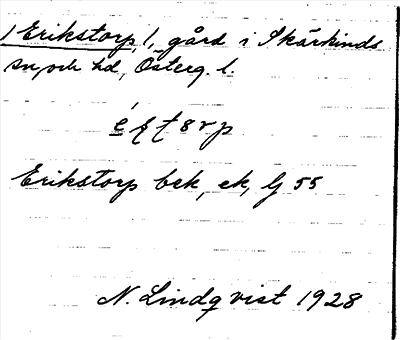 /Erikstorp/, gård i Skärkinds
sn och hd, Österg. l.
Erikstorp bek, ek, Lj 55
N. Lindqvist 1928